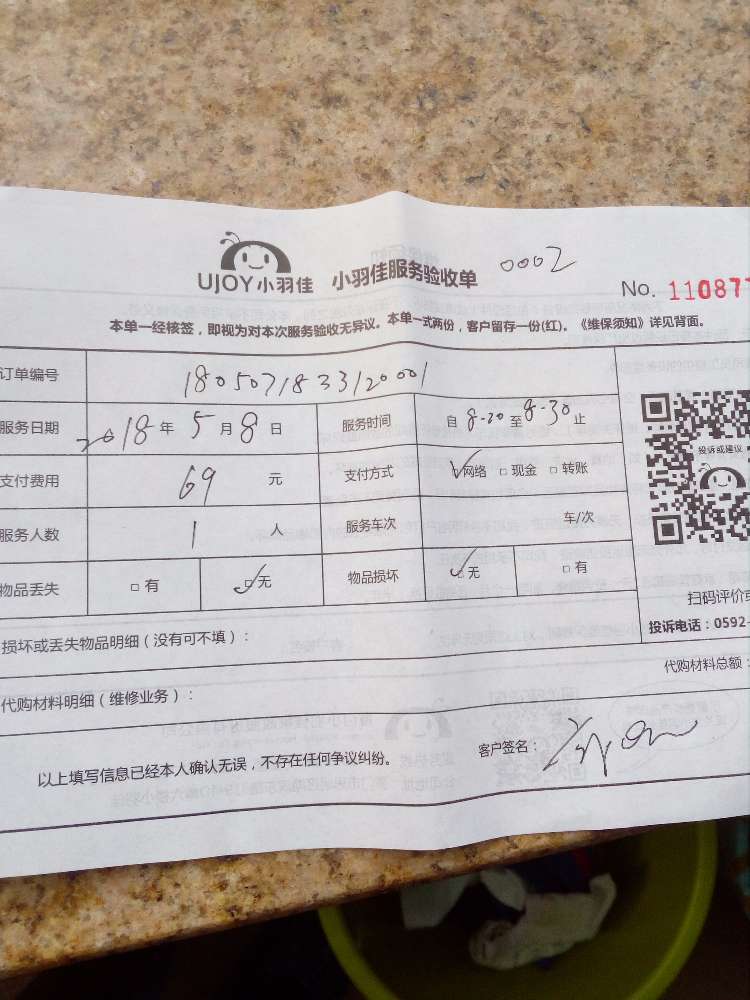 UJOY小羽佳 小羽佳服务验收单 0002
No. 110877
本单一经核签，即视为对本次服务验收无异议。本单一式两份，客户留存一份(红)。《维保须知》详见背面。
订单编号 1805071833120001
服务日期 2018年5月8日 服务时间 自8-20至8-30止
支付费用 69元 支付方式 ☑网络 □现金 □转账
投诉或建议
服务人数 1人 服务车次 车/次
物品丢失 □有 ☑无 物品损坏 ☑无 □有
扫码评价
损坏或丢失物品明细（没有可不填）：
投诉电话：0592-
代购材料总额：
代购材料明细（维修业务）：
以上填写信息已经本人确认无误，不存在任何争议纠纷。
客户签名：